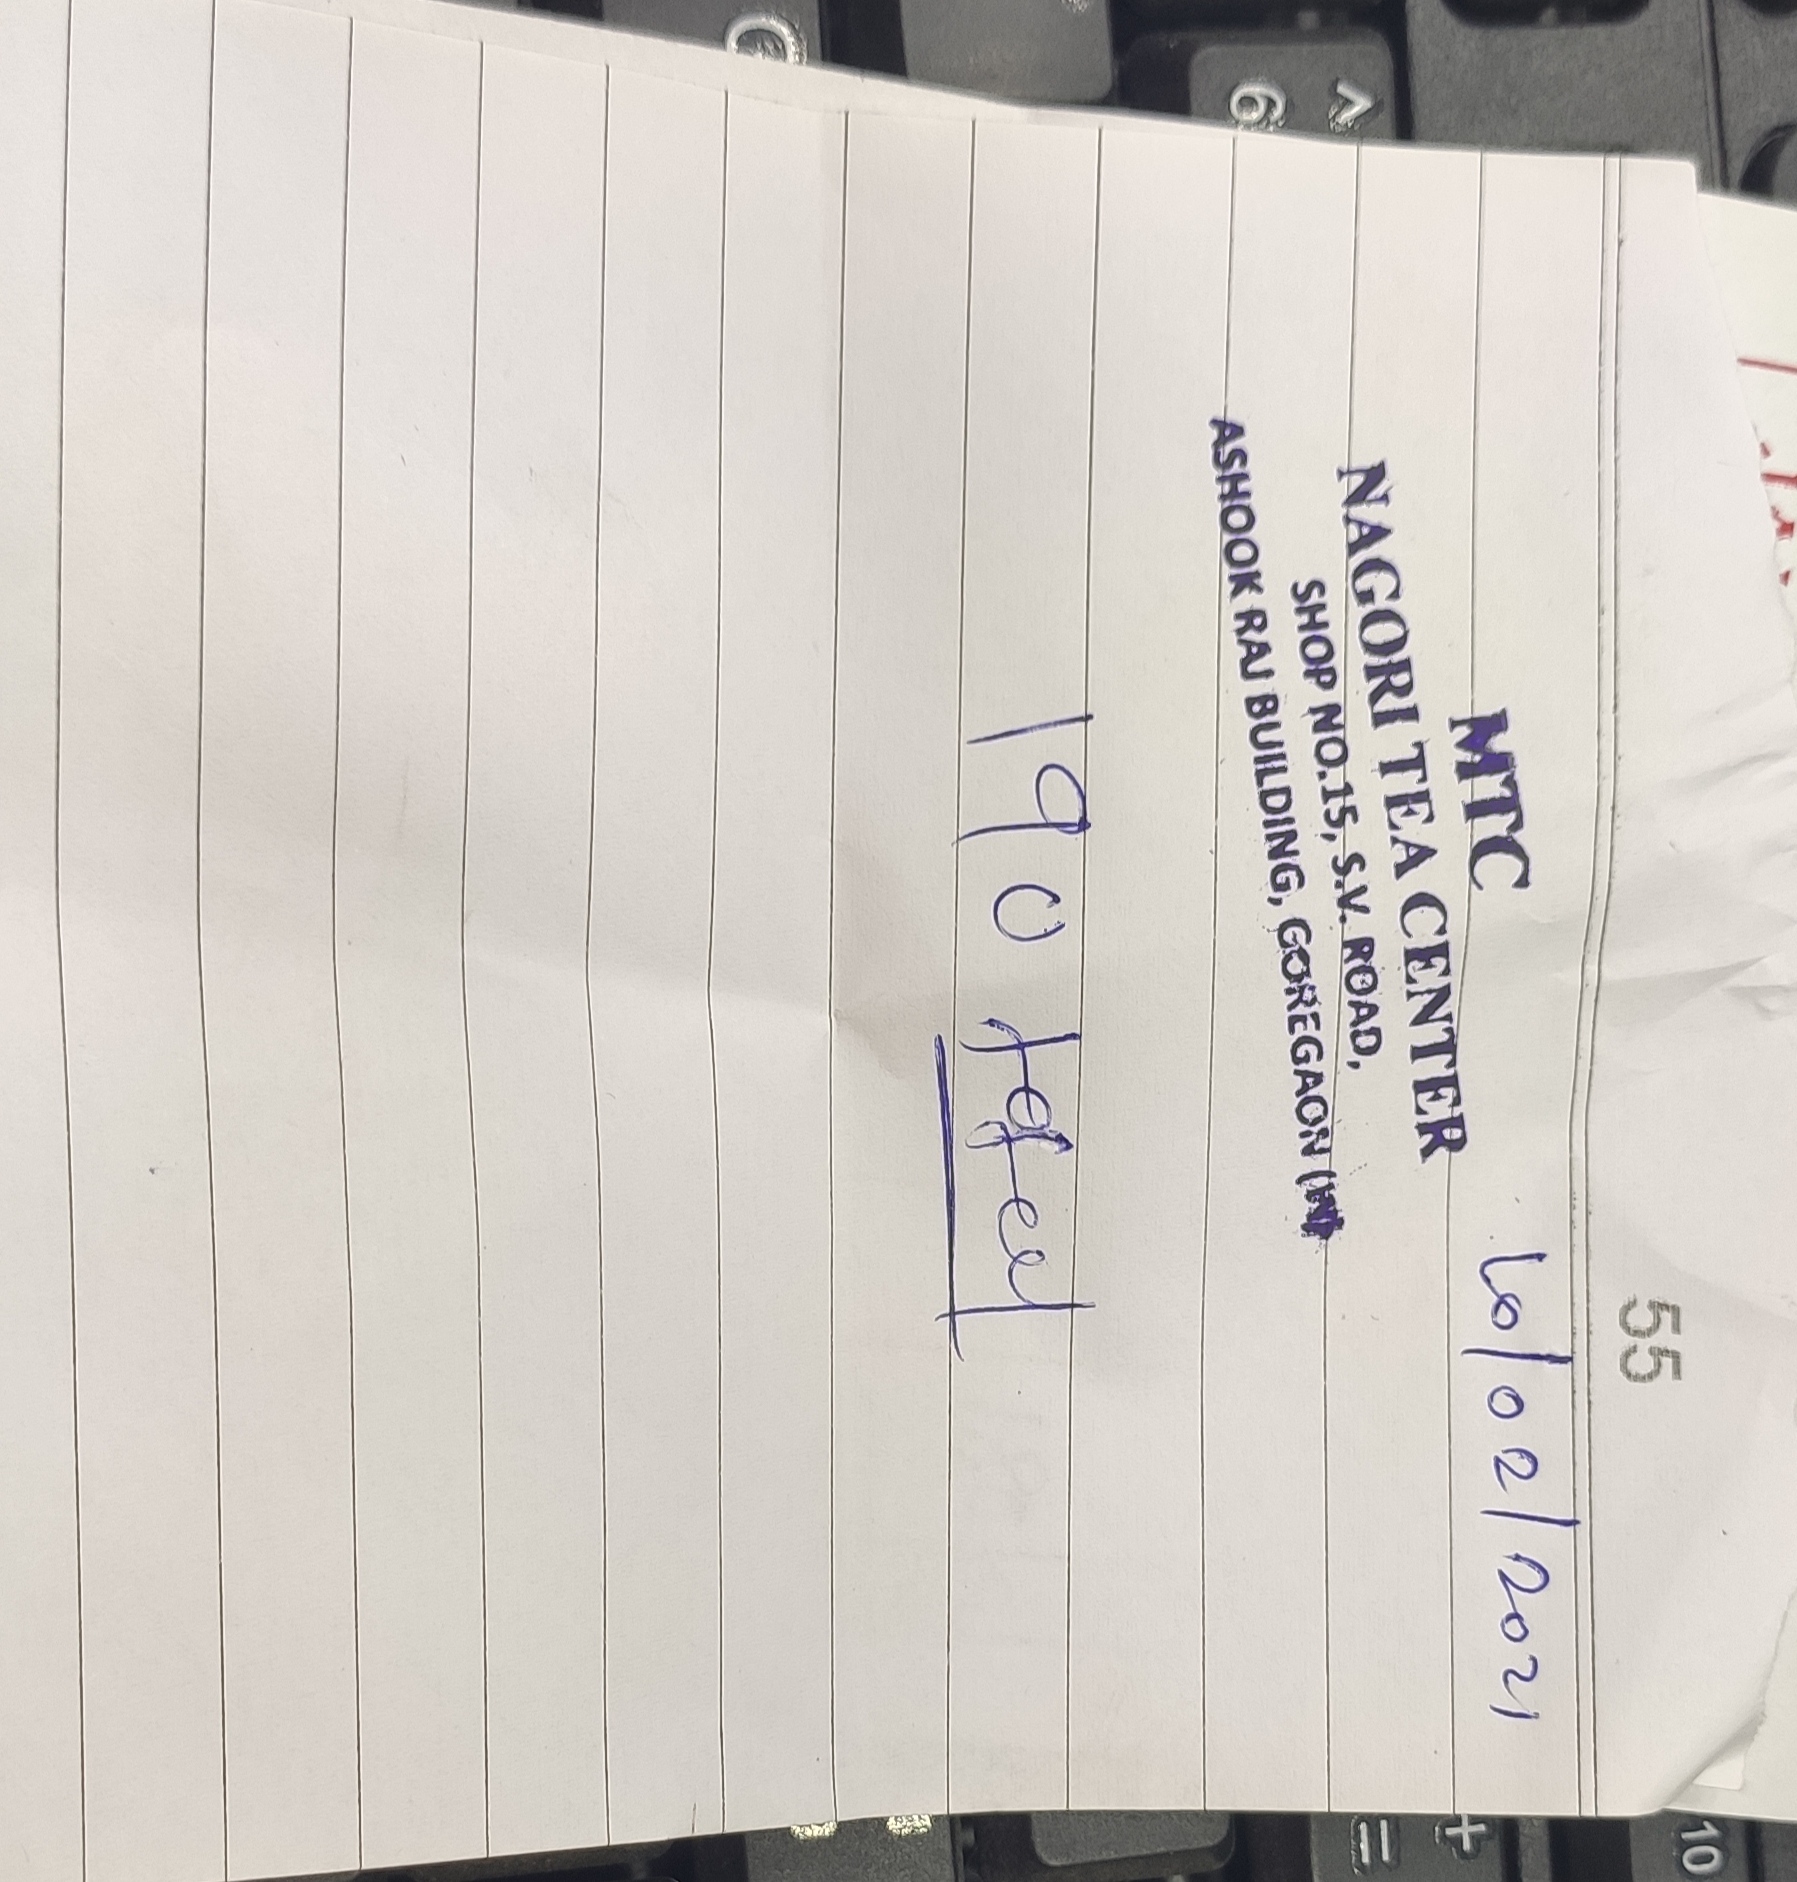 55
10/02/2021
MTC
NAGORI TEA CENTER
SHOP NO.15, S.V. ROAD,
ASHOOK RAJ BUILDING, GOREGAON (W)
190
6
^
+
=
10